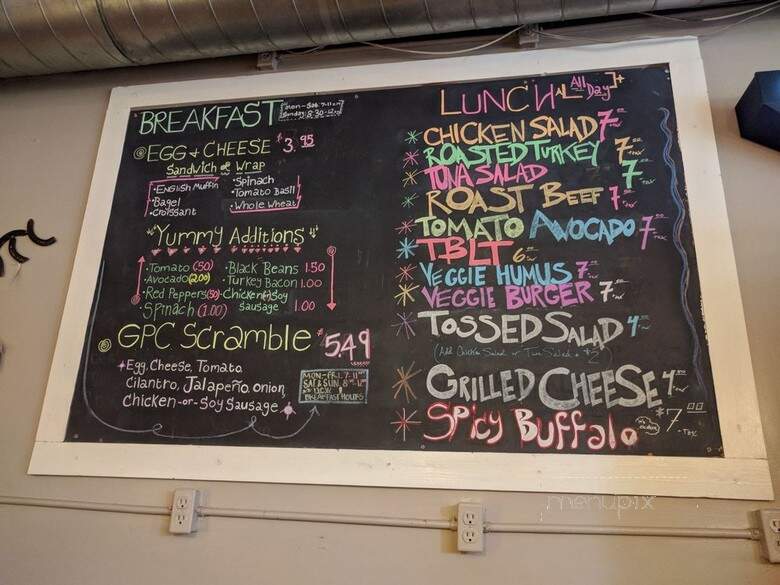 BREAKFAST
EGG & CHEESE $3.95
Sandwich or Wrap
• English Muffin
• Bagel
• Croissant
• Spinach
• Tomato Basil
• Whole Wheat
"Yummy Additions"
• Tomato (50)
• Avocado (2.00)
• Red Peppers (50)
• Spinach (1.00)
• Black Beans 1.50
• Turkey Bacon 1.00
• Chicken or Soy
Sausage 1.00
GPC Scramble $5.49
Egg, Cheese, Tomato
Cilantro, Jalapeño, Onion
Chicken-or-Soy Sausage
MON-FRI. 7-11
SAT & SUN. 8
NEW
BREAKFAST HOURS
LUNCH All Day
CHICKEN SALAD 7
ROASTED TURKEY 7
TUNA SALAD 7
ROAST BEEF 7
TOMATO AVOCADO 7
TBLT 6
VEGGIE HUMUS 7
VEGGIE BURGER 7
TOSSED SALAD 4
(Add Chicken Salad or Tuna Salad + $2)
GRILLED CHEESE 4
SPicy Buffalo $7.00
+ TAX
menupix